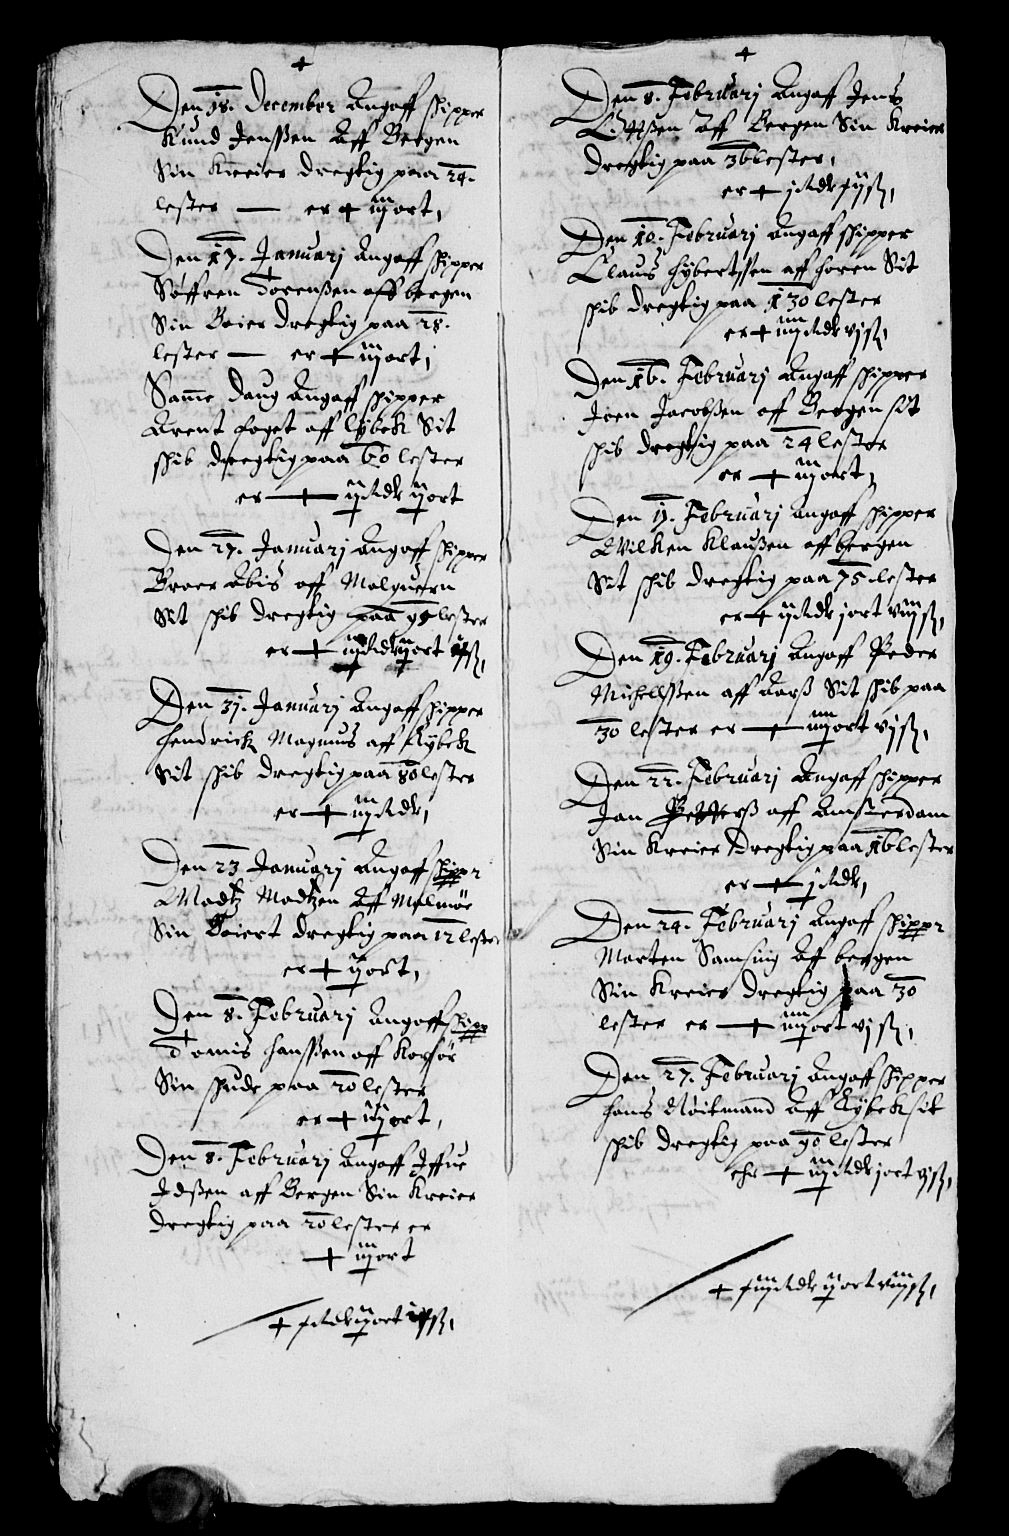 Den 18. December Angaff skipper
Knud Jenssen Aff Bergen
Sin Kreier dregtig paa 24.
lester — er + iij ort,
Den 17. Januarj Angaff skipper
Søffren Torenßen aff bergen
Sin Boier dregtig paa 28.
lester — er + iij ort,
Samme daug Angaff skipper
Arent foget aff lybek Sit
skib dregtig paa 60 lester
er + ij Rdr ij ort
Den 27. Januarj Angaff skipper
Broer Abis aff Molquern
Sit skib dregtig paa 95 lester
er + iij Rdr ij ort
Den 31. Januarj Angaff skipper
Hendrick Magnus aff Lybeck
Sit skib dregtig paa 80 lester
er + iij Rdr,
Den 23 Januarj Angaff skippr
Madtz Madtzen Aff Malmøe
Sin Boiert dregtig paa 12 lester
er + ij ort,
Den 8. Februarj Angaff skipp
Tomis Hanssen aff Korsør
Sin skude paa 20 lester
er + ij ort,
Den 8. Februarj Angaff Iffue
Ibßen aff Bergen Sin Kreier
dregtig paa 20 lester er
+ iij ort
Den 8. Februarj Angaff Jens
Ottßen Aff Bergen Sin Kreier
dregtig paa 36 lester,
er + j Rdr
Den 10. Februarj Angaff skipper
Claus Hybertssen aff horen Sit
skib dregtig paa 130 lester
er + iiij Rdr vj sk,
Den 16. Februarj Angaff skipper
Joen Jacobßen aff Bergen sit
skib dregtig paa 24 lester
er + iij ort,
Den 17. Februarj Angaff skipper
Wilken Klaußen aff bergen
Sit skib dregtig paa 75. lester
er + ij Rdr j ort viij sk,
Den 19. Februarj Angaff Peder
Michelssen aff Aarß Sit skib paa
30 lester er + iiij ort vj sk,
Den 22. Februarj Angaff skipper
Jan Petterß aff Amsterdam
Sin Kreier dregtig paa 16 lester
er + j Rdr,
Den 24. Februarj Angaff skippr
Morten Samsing Aff bergen
Sin Kreier dregtig paa 30
lester er + iiij ort vj sk,
Den 27. Februarj Angaff skipper
Hans Aff Lybek sit
skib dregtig paa 90 lester
ehr + iij Rdr j ort vj sk,